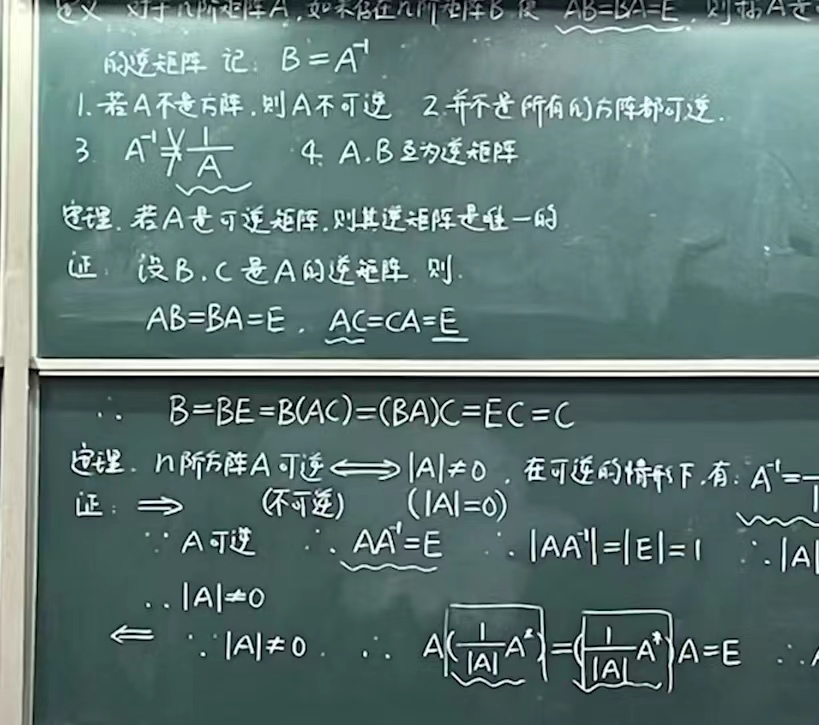 定义 对于n阶矩阵A,如果存在n阶矩阵B使 AB=BA=E,则称A是
的逆矩阵 记: B=A⁻¹
1.若A不是方阵,则A不可逆 2.并不是所有的方阵都可逆.
3 A⁻¹≠1/A 4. A.B互为逆矩阵
定理.若A是可逆矩阵,则其逆矩阵是唯一的
证: 设B.C是A的逆矩阵 则.
AB=BA=E. AC=CA=E
∴ B=BE=B(AC)=(BA)C=EC=C
定理. n阶方阵A可逆⟺|A|≠0.在可逆的情形下,有: A⁻¹=
证: ⟹ (不可逆) (|A|=0)
∵ A可逆 ∴ AA⁻¹=E ∴ |AA⁻¹|=|E|=1 ∴ |A|
∴ |A|≠0
⟸ ∵ |A|≠0. ∴ A(1/|A| A*)=(1/|A| A*)A=E ∴